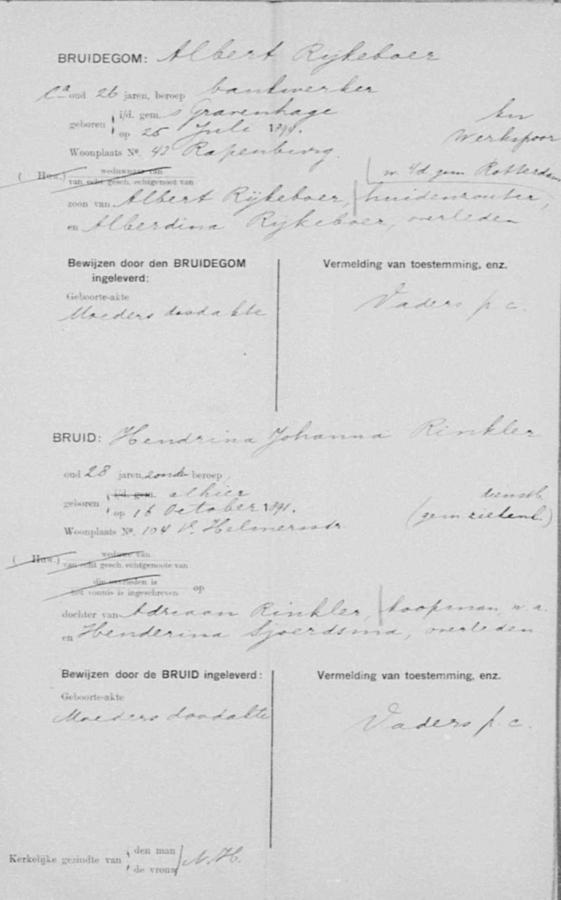 BRUIDEGOM: Albert Rijkeboer
oud 26 jaren, beroep bankwerker
geboren i/d. gem. 's Gravenhage
op 25 Juli
Werkspoor
Woonplaats No. 43 Rapenburg
( Huw.) weduwnaar van
van echt gesch. echtgenoot van
w. i/d gem Rotterdam
zoon van Albert Rijkeboer, huidenzouter,
en Alberdina Rijkeboer, overleden
Bewijzen door den BRUIDEGOM
ingeleverd:
Vermelding van toestemming, enz.
Geboorte-akte
Moeders doodakte
Vaders p. c.
BRUID: Hendrina Johanna Rinkler
oud 28 jaren, zonder beroep,
geboren i/d. gem. alhier
op 16 October 1891.
Woonplaats No. 104 v. Helmersstr
( Huw.) weduwe van
van echt gesch. echtgenoote van
die overleden is
het vonnis is ingeschreven op
dochter van Adriaan Rinkler, koopman, w. a.
en Henderina Sjoerdsma, overleden
Bewijzen door de BRUID ingeleverd:
Vermelding van toestemming, enz.
Geboorte-akte
Moeders doodakte
Vaders p. c.
Kerkelijke gezindte van den man
de vrouw
N. H.